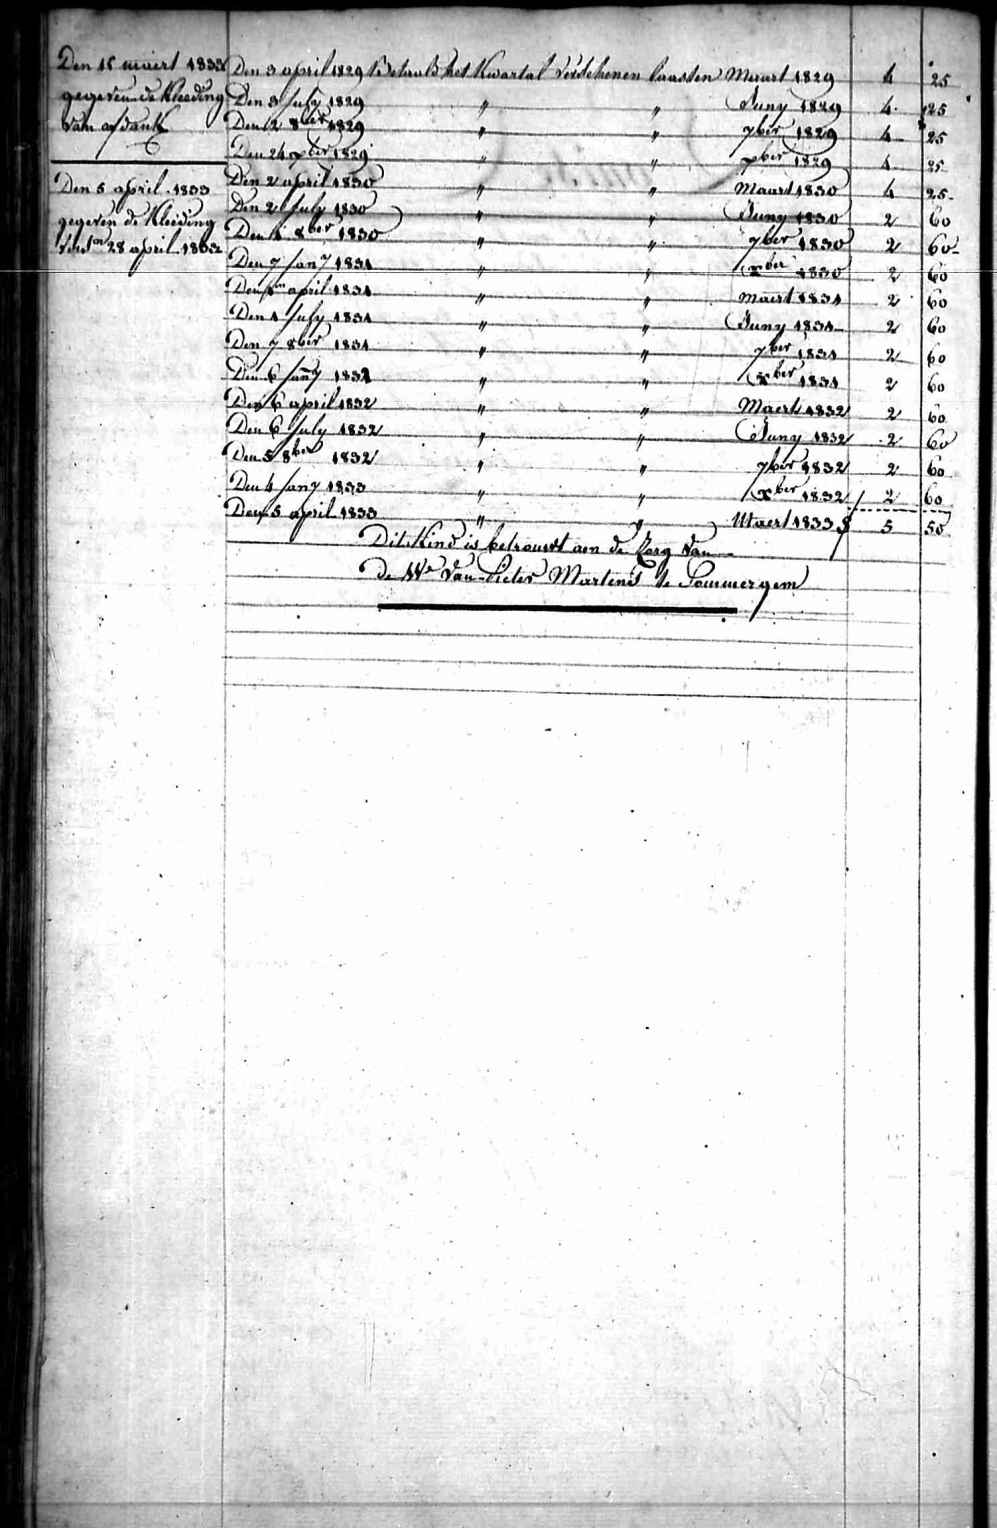 Den 15 maert 1833
gegeven de Kleeding
van afdank
Den 5 april 1833
gegeven de Kleeding
28 april 1832
Den 3 april 1829 Betaalt het Kwartal verschenen laasten Maart 1829 4 25
Den 3 July 1829 " " Juny 1829 4 25
Den 12 8ber 1829 " " 7ber 1829 4 25
Den 24 xber 1829 " " xber 1829 4 25
Den 2 april 1830 " " Maart 1830 4 25
Den 2 July 1830 " " Juny 1830 2 60
Den 1 8ber 1830 " " 7ber 1830 2 60
Den 7 Jany 1831 " " xber 1830 2 60
Den april 1831 " " Maert 1831 2 60
Den 1 July 1831 " " Juny 1831 2 60
Den 7 8ber 1831 " " 7ber 1831 2 60
Den 6 Jany 1832 " " xber 1831 2 60
Den 6 april 1832 " " Maert 1832 2 60
Den 6 July 1832 " " Juny 1832 2 60
Den 5 8ber 1832 " " 7ber 1832 2 60
Den 4 Jany 1833 " " xber 1832 2 60
Den 5 april 1833 " " Maert 1833 5 50
Dit Kind is betrouwt aen de Zorg van
de We van Pieter Martens te Sommergem